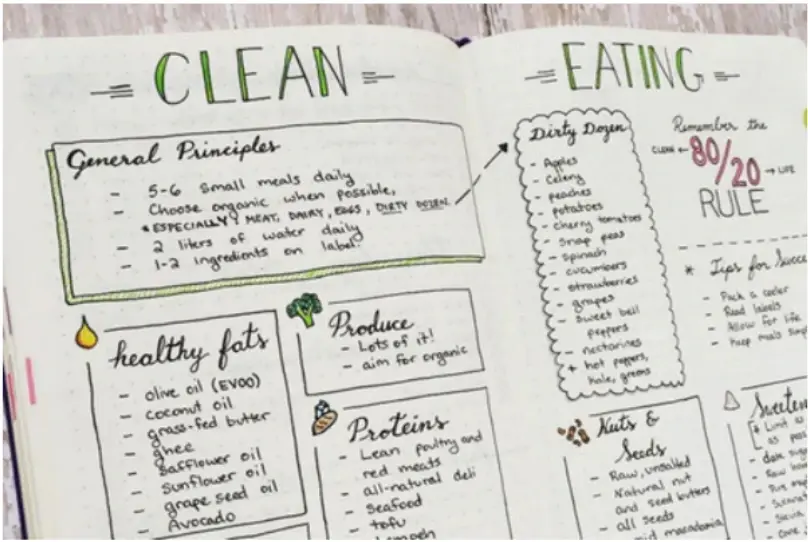 CLEAN
General Principles
- 5-6 small meals daily
- Choose organic when possible,
* ESPECIALLY MEAT, DAIRY, EGGS, DIRTY DOZEN
- 2 liters of water daily
- 1-2 ingredients on label
healthy fats
- olive oil (EVOO)
- coconut oil
- grass-fed butter
- ghee
- safflower oil
- sunflower oil
- grape seed oil
- Avocado
Produce
- Lots of it!
- aim for organic
Proteins
- Lean poultry and
red meats
- all-natural deli
- seafood
- tofu
EATING
Dirty Dozen
- Apples
- Celery
- peaches
- potatoes
- cherry tomatoes
- snap peas
- spinach
- cucumbers
- strawberries
- grapes
- sweet bell
peppers
- nectarines
+ hot peppers,
kale, greens
Remember the
CLEAN ← 80/20 → LIFE
RULE
* Tips for
- Pack a cooler
- Read labels
- Allow for life
- Keep meals
Nuts &
Seeds
- Raw, unsalted
- Natural nut
and seed butters
- all seeds
* Limit as